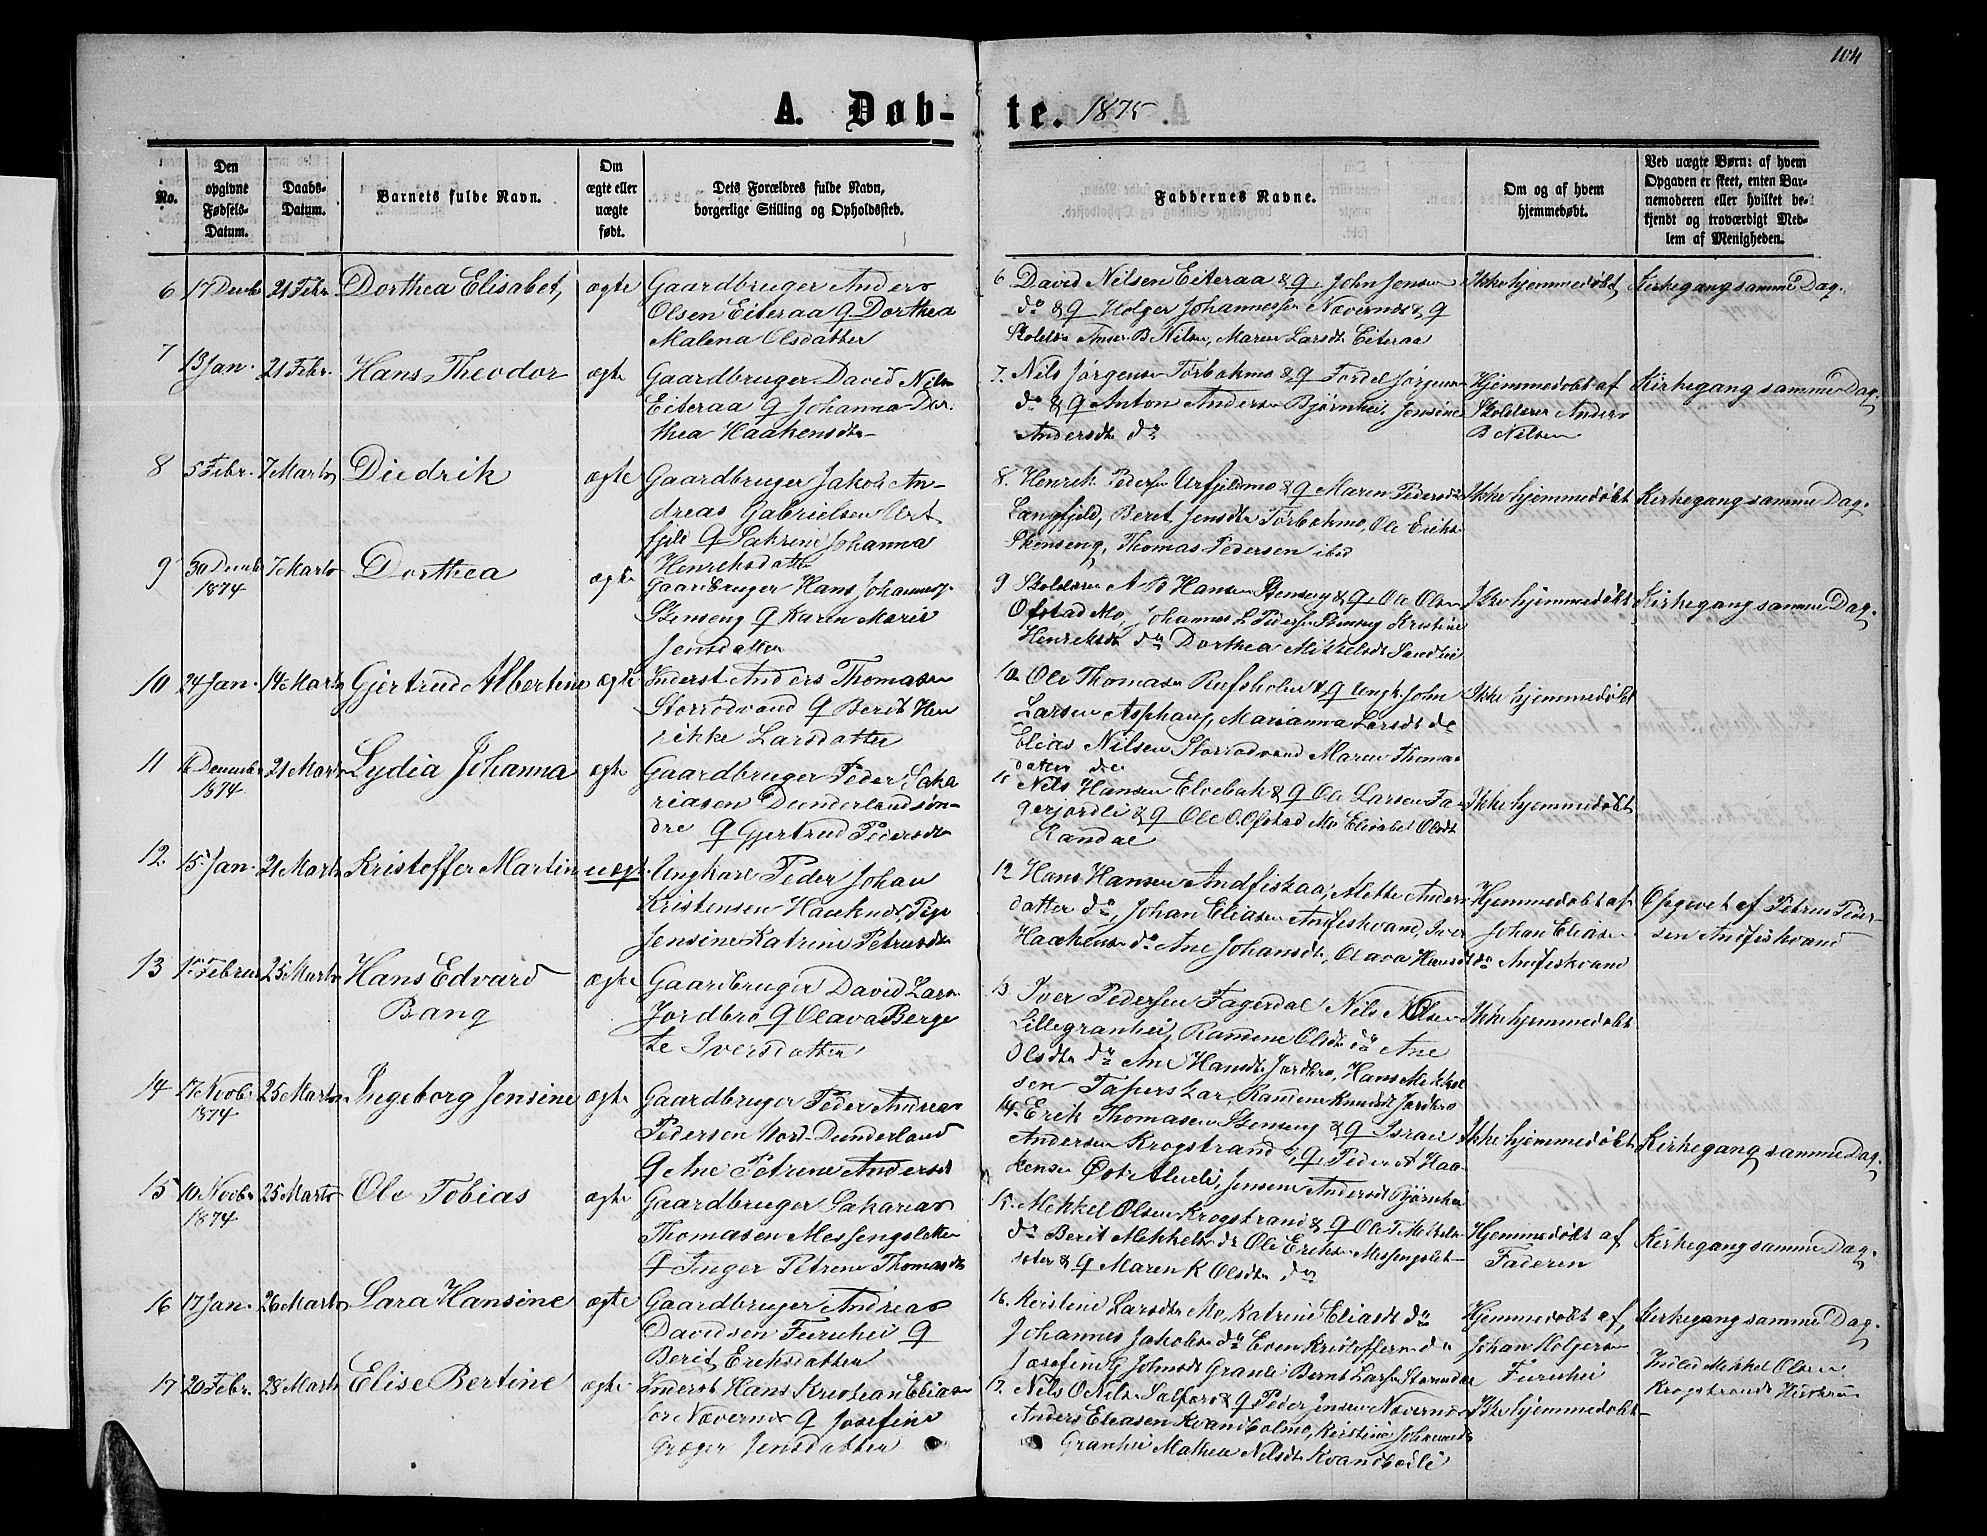 104
A. Døb-
te. 1875
No.
Den
opgivne
Fødsels-
Datum.
Daabs-
Datum.
Barnets fulde Navn.
Om
ægte eller
uægte
født.
Dets Forældres fulde Navn,
borgerlige Stilling og Opholdssted.
Faddernes Navne.
Om og af hvem
hjemmedøbt.
Ved uægte Børn: af hvem
Opgaven er skeet, enten Bar-
nemoderen eller hvilket be-
kjendt og troværdigt Med-
lem af Menigheden.
6 17 Decbr 21 Febr Dorthea Elisabet, ægte Gaardbruger Anders
Olsen Eiteraa & Dorthea
Malena Olsdatter
6 David Nilsen Eiteraa & Q, John Jensen
do & Q Holger Johannessen Nævernes & Q
Anders B Nilsen, Maren Larsdt Eiteraa
Ikke hjemmedøbt
Kirkegang samme Dag.
7 13 Jan. 21 Febr. Hans Theodor ægte Gaardbruger David Nilsen
Eiteraa & Johanna Dor-
thea Haakensdtr
7. Nils Jørgensen & Q Jørgensen
do & Q Anton Andersen Bjørnhei, Jensine
Andersdtr do
Hjemmedøbt af
Skolelærer Anders
B Nilsen
Kirkegang samme Dag.
8 5 Febr. 7 Marts Diedrik ægte Gaardbruger Jakob An-
dreas Gabrielsen Urt
fjeld & Johanna
Henriksdatter
8. Henrik Pedersen Urfjeldmo & Q Maren Pedersdtr
Langfjeld, Beret Jensdtr Ole Eriksen
Stenseng, Thomas Pedersen ibid
Ikke hjemmedøbt
Kirkegang samme Dag.
9 30 Decbr 7 Marts Dorthea ægte Gaardbruger Hans Johannes
1874
Stenseng & Karen Marie
Jensdatter
9 Skolelærer A B Hansen Stenseng & Q, Ole Olsen
Ofstad Mo, Johannes L Pedersen Stenseng Kristine
Henriksdtr do Dorthea Mikkelsdt Sandhei
Ikke hjemmedøbt
Kirkegang samme Dag.
10 24 Jan. 14 Marts Gjertrud Albertine ægte Inderst Anders Thomasen
Storrødvand & Berit Hen
rikke Larsdatter
10 Ole Thomasen & Q Ungk. John
Larsen Asphaug, Marianna Larsdt do
Elias Nilsen Storrødvand Maren Thomas
datter do
Ikke hjemmedøbt
11 16 Decembr 21 Marts Lydia Johanna ægte Gaardbruger Peder Saka
1874
riasen Dunderland søn-
dre & Gjertrud Pedersdtr
11 Nils Hansen Elvebak & Q Ole Larsen Fa-
gerjordli & Q Ole O. Ofstad Mo Elisabet Olsdtr
Randal
Ikke hjemmedøbt
12. 15 Jan. 21 Marts Kristoffer Martin uægt. Ungkarl Peder Johan
Kristensen Pige
Jensine Katrine Petersdtr
12 Hans Hansen Andfiskaa, Mette Anders
datter do, Johan Eliasen Andfiskvand, Iver
Haakensen do Ane Johansdt, Olava Hansdt do
Hjemmedøbt af
Johan Eliasen
Andfiskvand
Opgivet af Petrus Peder-
sen Andfiskvand
13 15 Februar 25 Marts Hans Edvard ægte Gaardbruger David Larsen
Bang
Jordbro & Olava Berge
te Iversdatter
13 Iver Pedersen Fagerdal, Nils N Olsen
Lillegranhei, Rasmine Olsdtr do Ane
Olsdtr do Ane Hansdtr Jordbro, Hans Mikkel
sen Rasmine Knudsdt Jordbro
Ikke hjemmedøbt
14 17 Novbr 25 Marts Ingeborg Jensine ægte Gaardbruger Peder Andreas
1874
Pedersen Nord-Dunderland
& Ane Petrine Andersdt
14. Erik Thomasen Stenseng & Q Israel
Andersen Krogstrand & Q, Peder A Haa-
kensen Jensine Andersdt Bjørnhei
Ikke hjemmedøbt
Kirkegang samme Dag.
15 10 Novbr 25 Marts Ole Tobias ægte Gaardbruger Sakarias
1874
Thomasen Messingsletten
& Inger Petrine Thomasdt
15. Mekkel Olsen Krogstrand & Q Ole T Mekkelsen
do Berit Mekkelsdt do Ole Eriksen Messingslet-
& Q Maren K Olsdtr do
Hjemmedøbt af
Faderen
Kirkegang samme Dag.
16 17 Jan. 26 Marts Sara Hansine ægte Gaardbruger Andreas
Davidsen Furuhei &
Berit Eriksdatter
16. Kerstine Larsdtr Mo, Katrine Eliasdt do
Johannes Jakobsen do Even Kristoffersen do
Josefine G Johnsdt Granli Bernt Larsen
Hjemmedøbt af,
Johan Holgersen
Furuhei
Kirkegang samme Dag.
17 20 Febr. 28 Marts Elise Bertine ægte Inderst Hans Kristian Elias
sen Nævernes & Josefine
Grøger Jensdatter
17. Nils O Nilsen & Q Peder Jensen Nævernes
Anders Eliasen Kvandholmo, Kerstine Johannesdt
Granhei Mathea Nilsdtr Kvandbækli
Ikke hjemmedøbt
Mekkel Olsen
Krogstrands